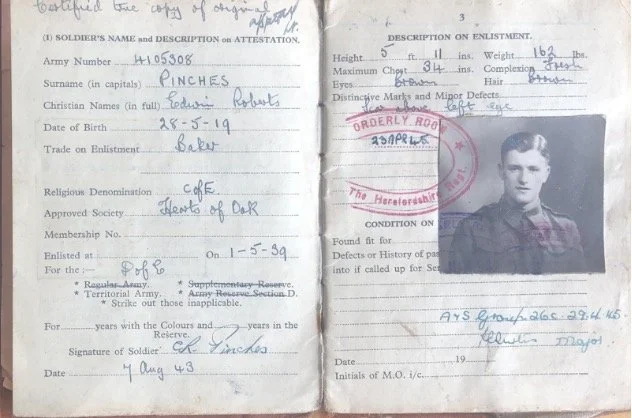 Certified true copy of original
(I) SOLDIER'S NAME and DESCRIPTION on ATTESTATION.
Army Number 4105308
Surname (in capitals) PINCHES
Christian Names (in full) Edwin Roberts
Date of Birth 28-5-19
Trade on Enlistment Baker
Religious Denomination C of E
Approved Society Hearts of Oak
Membership No.
Enlisted at On 1-5-39
For the :— D of E
* Regular Army. * Supplementary Reserve.
* Territorial Army. * Army Reserve Section D.
* Strike out those inapplicable.
For years with the Colours and years in the
Reserve.
Signature of Soldier Pinches
Date 7 Aug 43
3
DESCRIPTION ON ENLISTMENT.
Height 5 ft. 11 ins. Weight 162 lbs.
Maximum Chest 34 ins. Complexion Fresh
Eyes Brown Hair Brown
Distinctive Marks and Minor Defects
Scar above left eye
ORDERLY ROOM
23 APR 45
The Herefordshire Regt.
CONDITION ON
Found fit for
Defects or History of pas
into if called up for Ser
A & S Group 26c. 29.4.45.
Major
Date 19
Initials of M.O. i/c.